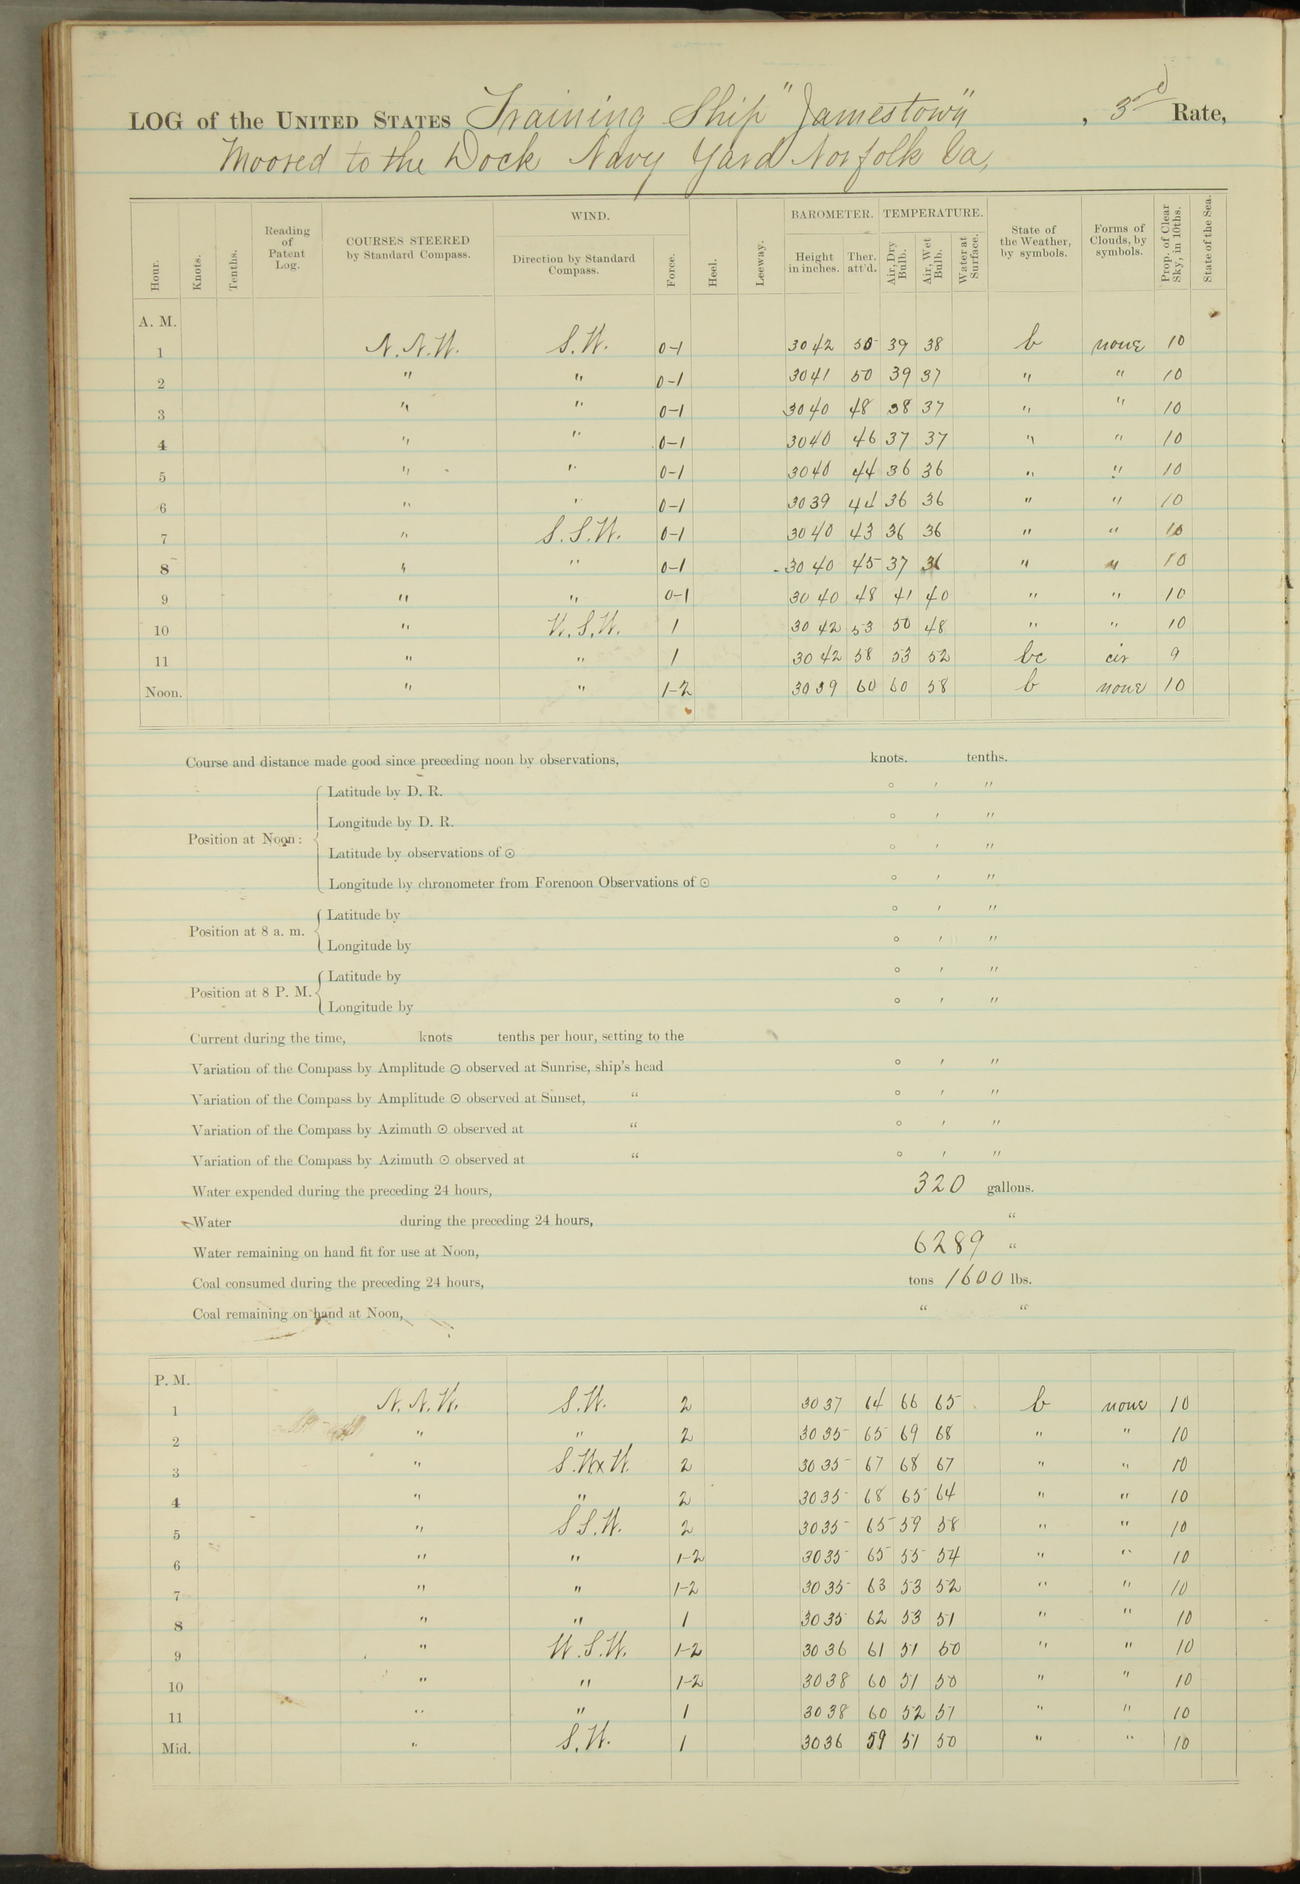 LOG of the UNITED STATES Training Ship "Jamestown", 3rd Rate,
Moored to the Dock Navy Yard Norfolk Va,
Hour. Knots. Tenths. Reading of Patent Log. COURSES STEERED by Standard Compass. WIND. Direction by Standard Compass. Force. Heel. Leeway. BAROMETER. Height in inches. Ther. att'd. TEMPERATURE. Air, Dry Bulb. Air, Wet Bulb. Water at Surface. State of the Weather, by symbols. Forms of Clouds, by symbols. Prop. of Clear Sky, in 10ths. State of the Sea.
A. M.
1 N.N.W. S.W. 0-1 30 42 50 39 38 b none 10
2 " " 0-1 30 41 50 39 37 " " 10
3 " " 0-1 30 40 48 38 37 " " 10
4 " " 0-1 30 40 46 37 37 " " 10
5 " " 0-1 30 40 44 36 36 " " 10
6 " " 0-1 30 39 44 36 36 " " 10
7 " S.S.W. 0-1 30 40 43 36 36 " " 10
8 " " 0-1 30 40 45 37 36 " " 10
9 " " 0-1 30 40 48 41 40 " " 10
10 " W.S.W. 1 30 42 53 50 48 " " 10
11 " " 1 30 42 58 53 52 bc cir 9
Noon. " " 1-2 30 39 60 60 58 b none 10
Course and distance made good since preceding noon by observations, knots. tenths.
Position at Noon: Latitude by D. R. ° ′ ″
Longitude by D. R. ° ′ ″
Latitude by observations of ☉ ° ′ ″
Longitude by chronometer from Forenoon Observations of ☉ ° ′ ″
Position at 8 a. m. Latitude by ° ′ ″
Longitude by ° ′ ″
Position at 8 P. M. Latitude by ° ′ ″
Longitude by ° ′ ″
Current during the time, knots tenths per hour, setting to the
Variation of the Compass by Amplitude ☉ observed at Sunrise, ship's head ° ′ ″
Variation of the Compass by Amplitude ☉ observed at Sunset, " ° ′ ″
Variation of the Compass by Azimuth ☉ observed at " ° ′ ″
Variation of the Compass by Azimuth ☉ observed at " ° ′ ″
Water expended during the preceding 24 hours, 320 gallons.
Water during the preceding 24 hours, "
Water remaining on hand fit for use at Noon, 6289 "
Coal consumed during the preceding 24 hours, tons 1600 lbs.
Coal remaining on hand at Noon, " "
P. M.
1 N.N.W. S.W. 2 30 37 64 66 65 b none 10
2 " " 2 30 35 65 69 68 " " 10
3 " S.WxW. 2 30 35 67 68 67 " " 10
4 " " 2 30 35 68 65 64 " " 10
5 " S.S.W. 2 30 35 65 59 58 " " 10
6 " " 1-2 30 35 65 55 54 " " 10
7 " " 1-2 30 35 63 53 52 " " 10
8 " " 1 30 35 62 53 51 " " 10
9 " W.S.W. 1-2 30 36 61 51 50 " " 10
10 " " 1-2 30 38 60 51 50 " " 10
11 " " 1 30 38 60 52 51 " " 10
Mid. " S.W. 1 30 36 59 51 50 " " 10